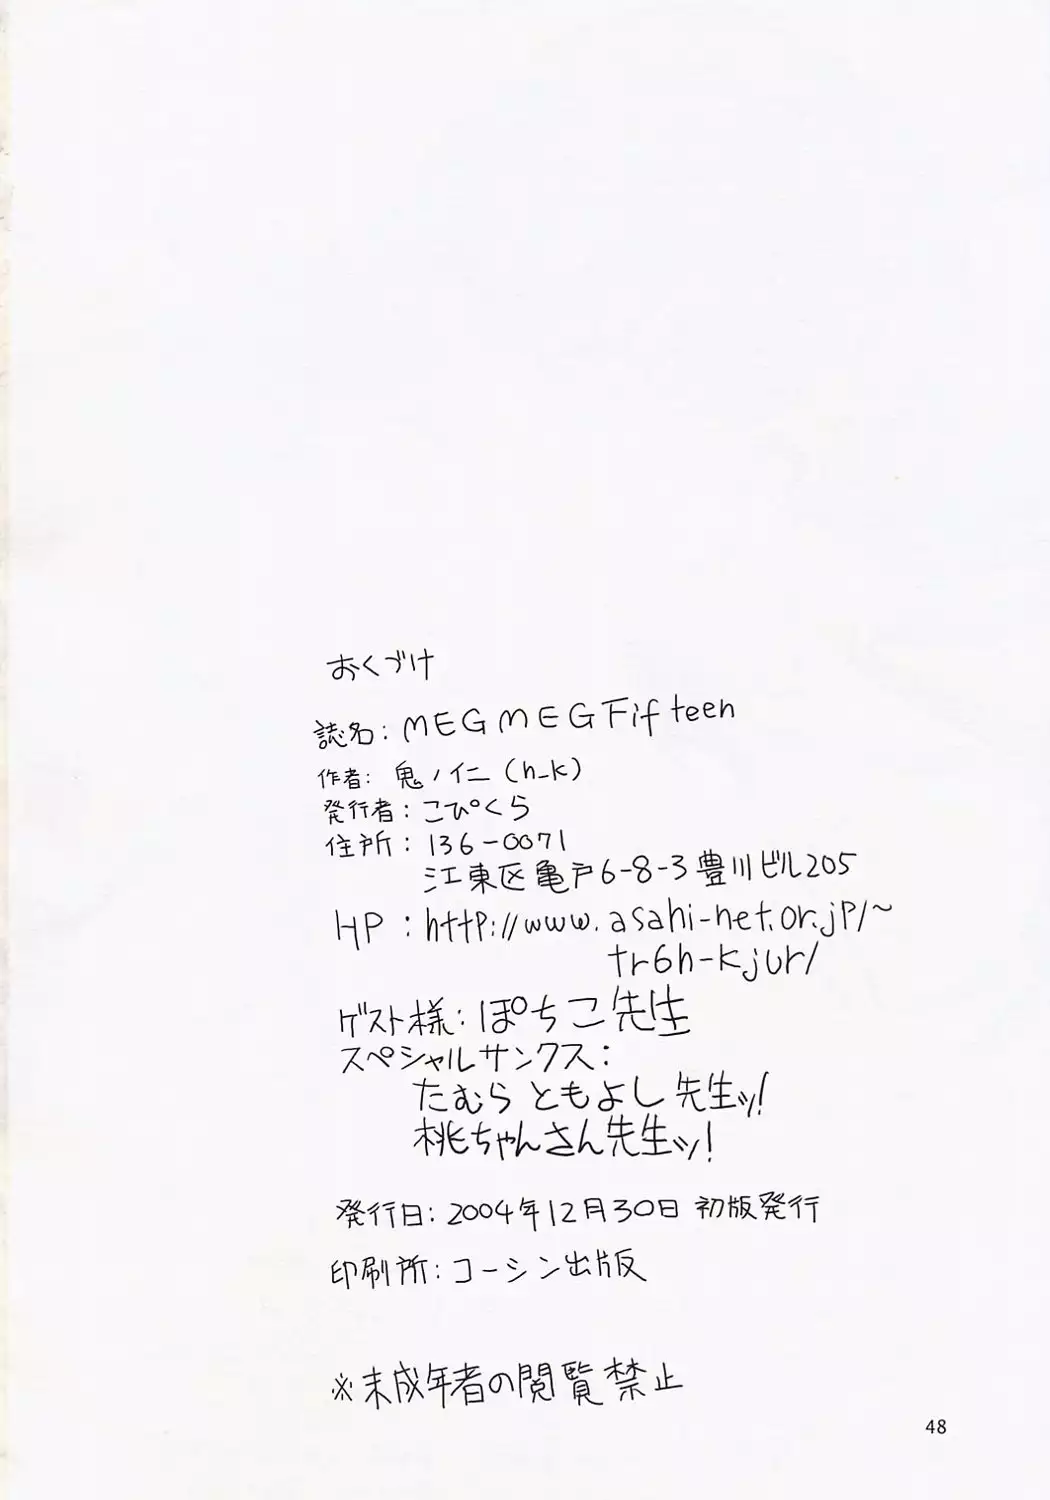 おくづけ
誌名：MEGMEGFifteen
作者：鬼ノ仁（h_k）
発行者：こぴくら
住所：136-0071
江東区亀戸6-8-3豊川ビル205
HP：http://www.asahi-net.or.jp/~
tr6h-kjur/
ゲスト様：ぽちこ先生
スペシャルサンクス：
たむらともよし先生ッ!
桃ちゃんさん先生ッ!
発行日：2004年12月30日 初版発行
印刷所：コーシン出版
※未成年者の閲覧禁止
48